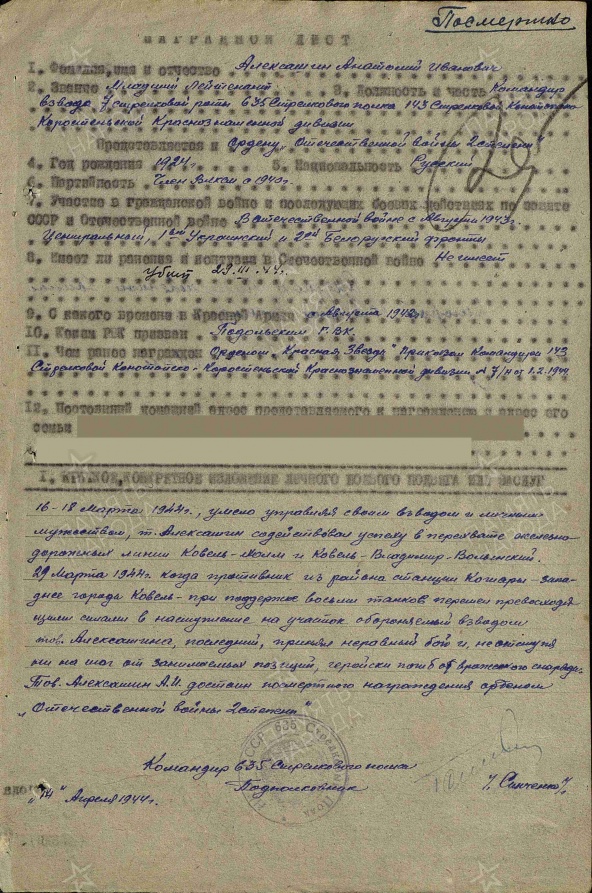 Посмертно
НАГРАДНОЙ ЛИСТ
1. Фамилия, имя и отчество Алексашин Анатолий Иванович
2. Звание Младший Лейтенант 3. Должность и часть Командир
взвода 7 стрелковой роты 635 Стрелкового полка 143 Стрелковой Конотопско-
Коростеньской Краснознаменной дивизии
Представляется к Ордену „Отечественной войны 2 степени"
4. Год рождения 1924г. 5. Национальность Русский
6. Партийность Член ВЛКСМ с 1940г.
7. Участие в гражданской войне и последующих боевых действиях по защите
СССР и Отечественной войне В отечественной войне с Августа 1943г.
Центральный, 1ый Украинский и 2ой Белорусский фронты
8. Имеет ли ранения и контузии в Отечественной войне Не имеет
Убит 29.III.44г.
9. С какого времени в Красной Армии с Августа 1942г.
10. Каким РВК призван Подольским Г.В.К.
11. Чем ранее награжден Орденом „Красная Звезда" Приказом Командира 143
Стрелковой Конотопско-Коростеньской Краснознаменной дивизии № 7/н от 1.2.1944
12. Постоянный домашний адрес представляемого к награждению и адрес его
семьи
I. КРАТКОЕ, КОНКРЕТНОЕ ИЗЛОЖЕНИЕ ЛИЧНОГО БОЕВОГО ПОДВИГА ИЛИ ЗАСЛУГ
16-18 Марта 1944г., умело управляя своим взводом и личным
мужеством, т. Алексашин содействовал успеху в перехвате железно-
дорожных линии Ковель-Холм и Ковель-Владимир-Волынский.
29 Марта 1944г. когда противник из района станции Кошары-запа-
днее города Ковель-при поддержке восьми танков перешел превосходя-
щими силами в наступление на участок обороняемый взводом
тов. Алексашина, последний, принял неравный бой и, не отступя
ни на шаг от занимаемых позиций, геройски погиб от вражеского снаряда.
Тов. Алексашин А.И. достоин посмертного награждения орденом
„Отечественной войны 2 степени"
Командир 635 Стрелкового полка
Подполковник /Сипченко/
„14" Апреля 1944г.